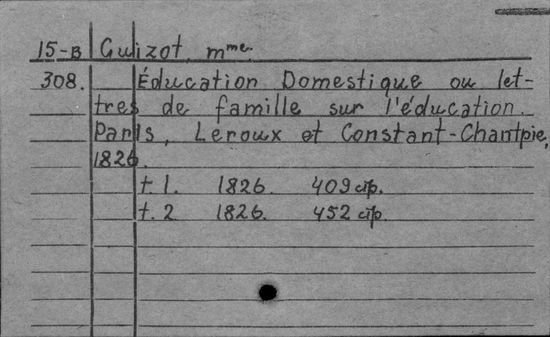 15-B Guizot, mme.
308. Éducation Domestique ou let-
tres de famille sur l'éducation.
Paris, Leroux et Constant-Chantpie,
1826.
t. 1. 1826. 409 стр.
t. 2 1826. 452 стр.